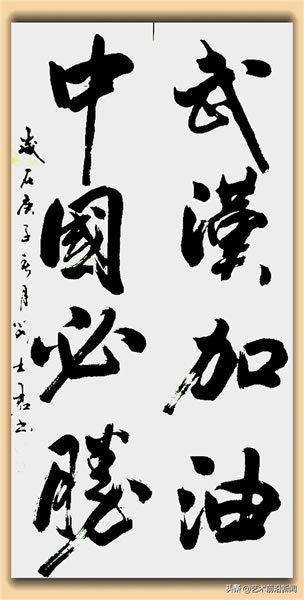 武漢加油
中國必勝
歲在庚子春月
头条@艺术前沿新闻